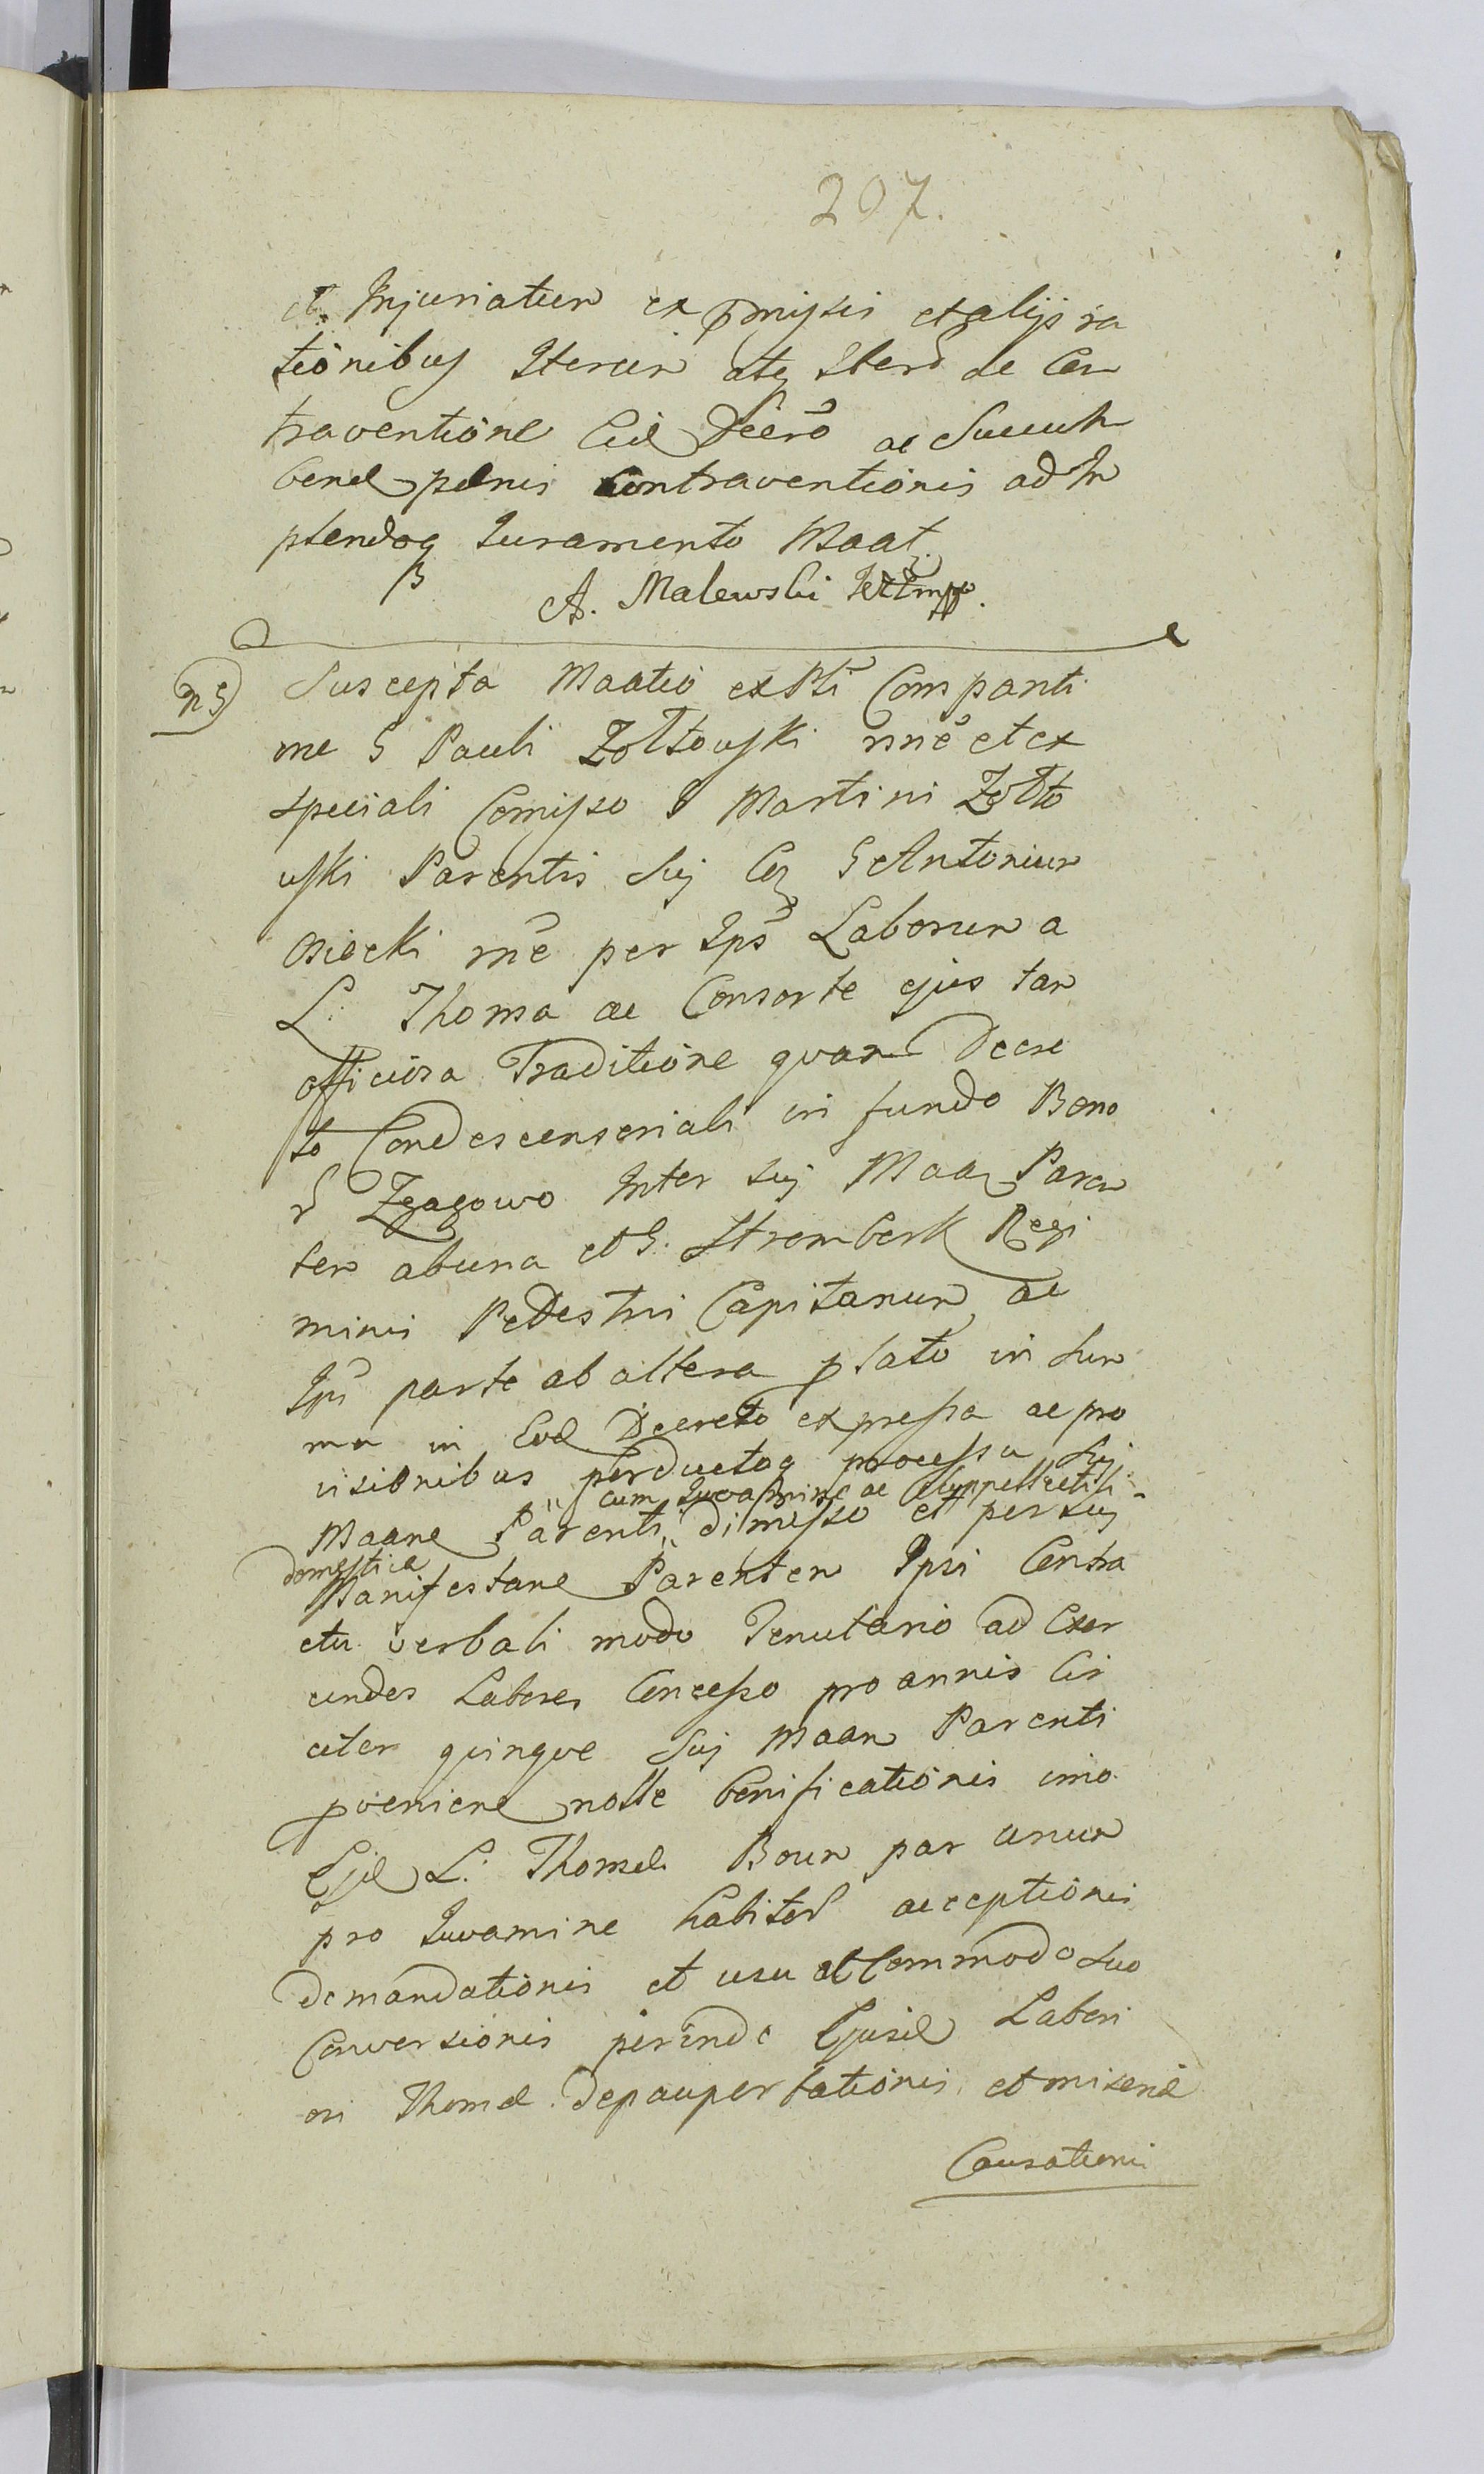 207.
et Injuriatum ex pmissis et alijs ra
tionibus Iterum atq Itero de Con
traventione Eid Decro ac Succum
bend penis contraventionis ad Im
plendoq Juramento Maat.
A. Malewski
Suscepta Maatio ex Pti Comparti
me G Pauli Zołtowski nne et ex
speciali Comisso G Martini Zołto
wski Parentis Suj Cq G Antonium
Osiecki me per Ips Laborum a
L. Thoma ac Consorte ejus tam
officiosa Traditione quam Decre
to Condescensoriali in fundo Bono
r Zgagowo Inter Suj Maan Paren
tem ab una et G. Stromberk Regi
minis Pedestris Capitanum ac
Ips parte ab altera plato in Sum
ma in Eod Decreto expressa ac pro
visionibus perductoq processu Suj
cum Juvamine ac Suppellectili
Maane Parenti dimisso et per Suj
domestica
Manifestane Parentem Ipsi Contra
ctu verbali modo Tenutario ad Exer
cendos Labores Concesso pro annis Cir
citer quinque Suj Maan Parenti
pveniene nolle bonificationis imo
Ejd L. Thomae Boum par unum
pro Juvamine habitor acceptionis
demandationis et usu et Commodo suo
Conversionis perinde Ejusd Labori
osi Thomae depaupertationis et miseriae
Causationis